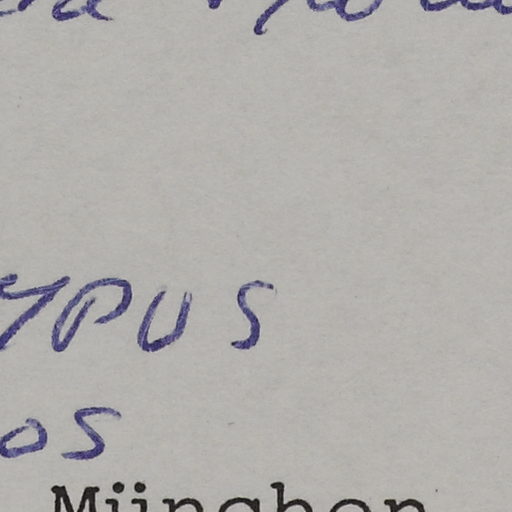 YPUS
os
München